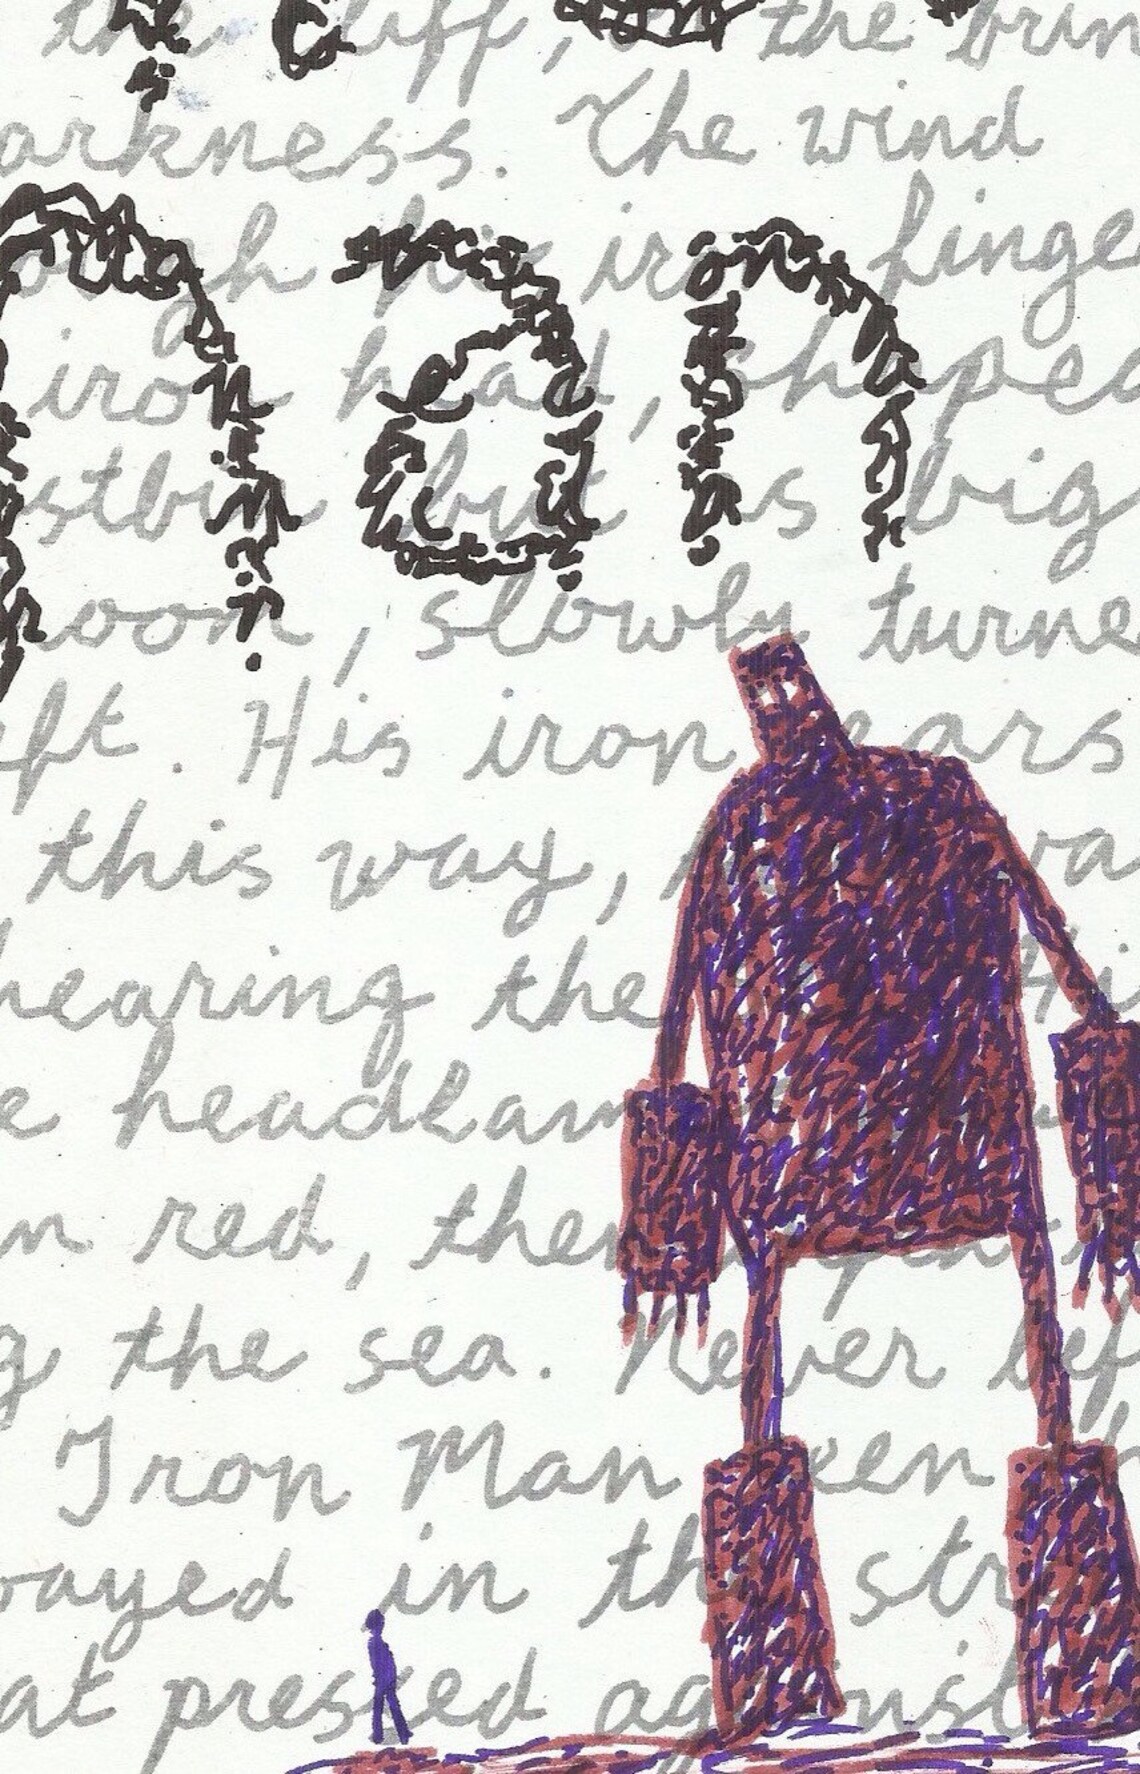 the cliff, the brin
arkness. The wind
man
iron finge
iron head, shaped
stbin but as big
room, slowly turne
eft. His iron ears
this way,
hearing the
e headlam
n red, then
g the sea. Never bef
Iron Man been
ayed in the str
at pressed against